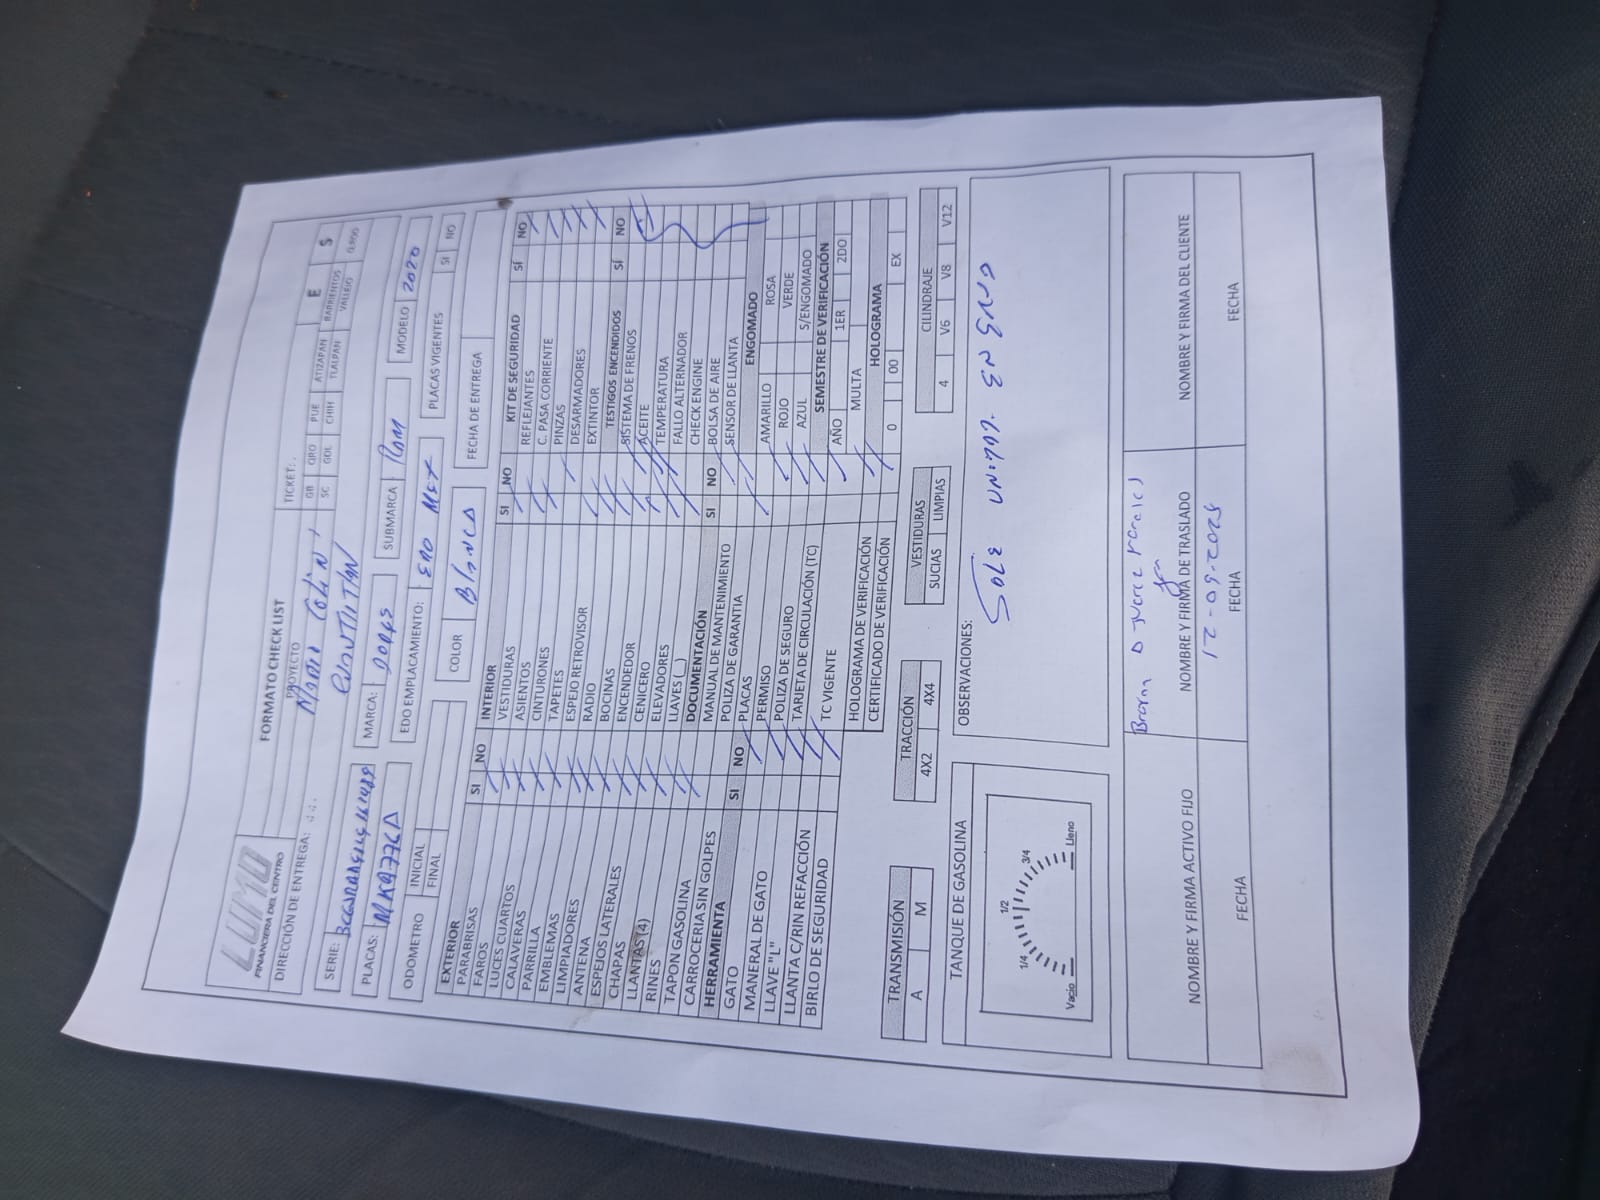 LUMO
FINANCIERA DEL CENTRO
FORMATO CHECK LIST
PROYECTO
TICKET:
DIRECCIÓN DE ENTREGA:
GB QRO PUE ATIZAPAN BARRIENTOS
SC GDL CHIH TLALPAN VALLEJO
E S
SERIE:
CUAUTITLAN
PLACAS: MARCA: DODGE SUBMARCA RAM MODELO 2020
ODOMETRO INICIAL
FINAL
EDO EMPLACAMIENTO: EDO MEX PLACAS VIGENTES SI NO
COLOR Blanca FECHA DE ENTREGA
EXTERIOR SI NO
PARABRISAS
FAROS
LUCES CUARTOS
CALAVERAS
PARRILLA
EMBLEMAS
LIMPIADORES
ANTENA
ESPEJOS LATERALES
CHAPAS
LLANTAS (4)
RINES
TAPON GASOLINA
CARROCERIA SIN GOLPES
HERRAMIENTA SI NO
GATO
MANERAL DE GATO
LLAVE "L"
LLANTA C/RIN REFACCIÓN
BIRLO DE SEGURIDAD
INTERIOR SI NO
VESTIDURAS
ASIENTOS
CINTURONES
TAPETES
ESPEJO RETROVISOR
RADIO
BOCINAS
ENCENDEDOR
CENICERO
ELEVADORES
LLAVES (_)
DOCUMENTACIÓN SI NO
MANUAL DE MANTENIMIENTO
POLIZA DE GARANTIA
PLACAS
PERMISO
POLIZA DE SEGURO
TARJETA DE CIRCULACIÓN (TC)
TC VIGENTE
HOLOGRAMA DE VERIFICACIÓN
CERTIFICADO DE VERIFICACIÓN
KIT DE SEGURIDAD SÍ NO
REFLEJANTES
C. PASA CORRIENTE
PINZAS
DESARMADORES
EXTINTOR
TESTIGOS ENCENDIDOS SÍ NO
SISTEMA DE FRENOS
ACEITE
TEMPERATURA
FALLO ALTERNADOR
CHECK ENGINE
BOLSA DE AIRE
SENSOR DE LLANTA
ENGOMADO
AMARILLO ROSA
ROJO VERDE
AZUL S/ENGOMADO
SEMESTRE DE VERIFICACIÓN
AÑO 1ER 2DO
MULTA
HOLOGRAMA
0 00 EX
TRANSMISIÓN
A M
TRACCIÓN
4X2 4X4
VESTIDURAS
SUCIAS LIMPIAS
CILINDRAJE
4 V6 V8 V12
TANQUE DE GASOLINA
Vacio 1/4 1/2 3/4 Lleno
OBSERVACIONES:
EN
NOMBRE Y FIRMA ACTIVO FIJO
FECHA
NOMBRE Y FIRMA DE TRASLADO
FECHA
NOMBRE Y FIRMA DEL CLIENTE
FECHA